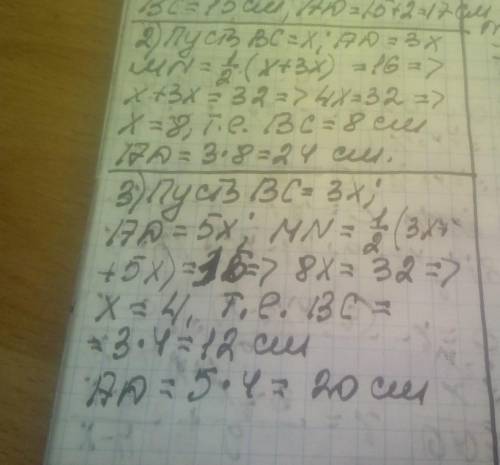 BC=15 см, AD=15+2=17 см
2) Пусть BC=x; AD=3x
MN=1/2·(x+3x)=16=>
x+3x=32=>4x=32=>
x=8, т.е. BC=8 см
AD=3·8=24 см.
3) Пусть BC=3x;
AD=5x; MN=1/2(3x+
+5x)=16=> 8x=32=>
x=4, т.е. BC=
=3·4=12 см
AD=5·4=20 см